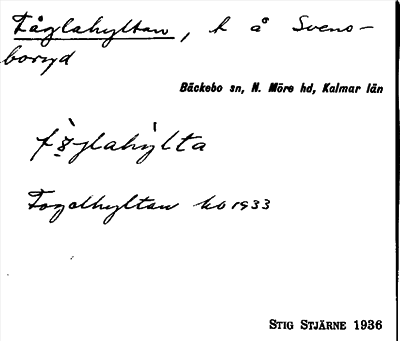 Fåglahyltan, t å Svens-
boryd
Bäckebo sn, N. Möre hd, Kalmar län
Fogelhyltan kb 1933
STIG STJÄRNE 1936